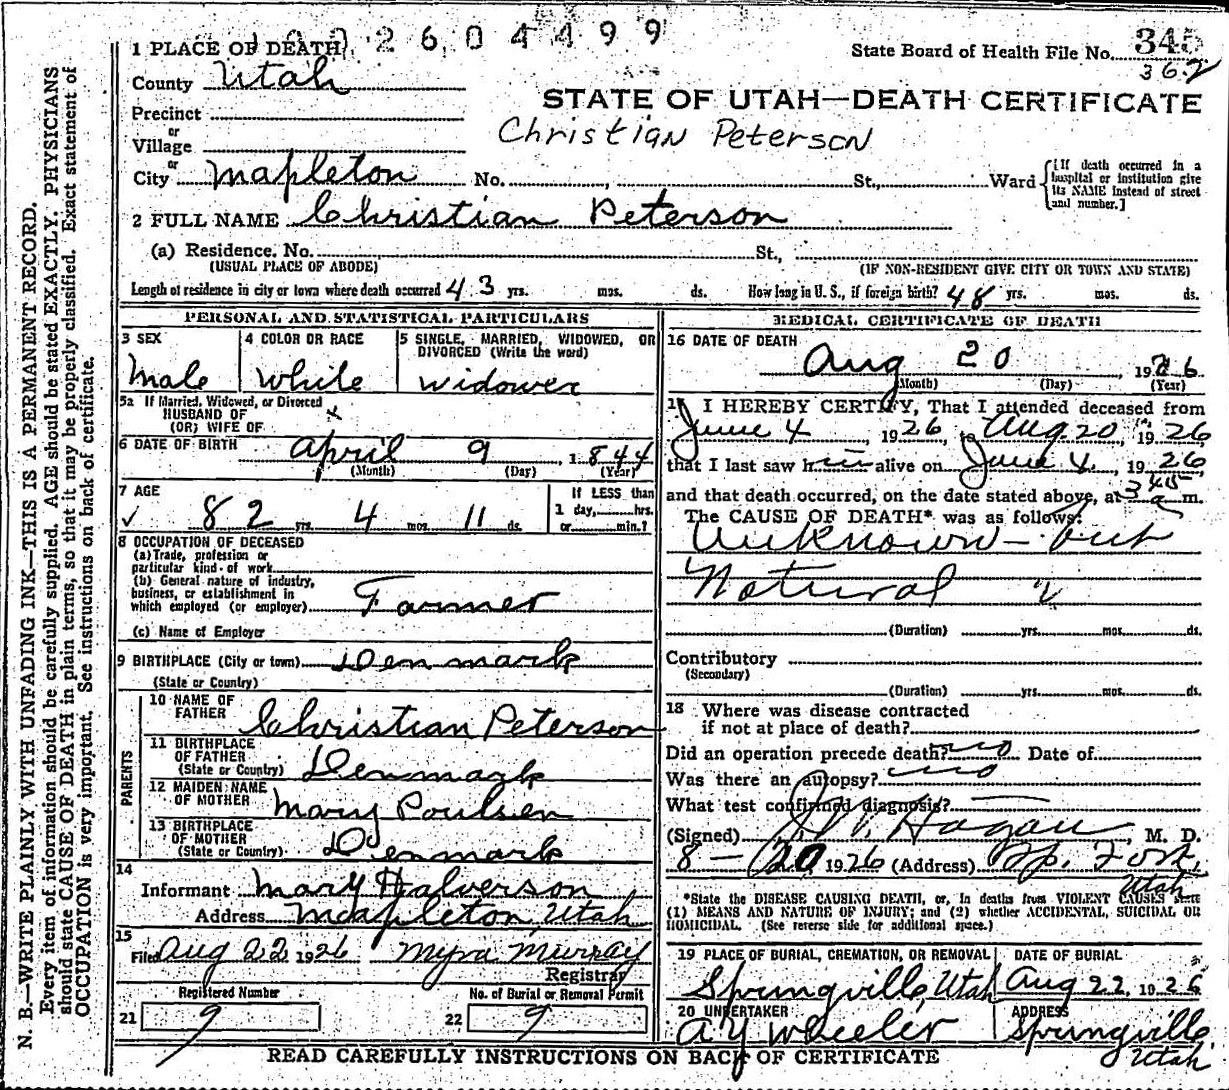 2 6 0 4 4 9 9
1 PLACE OF DEATH
State Board of Health File No. 345
362
County Utah
STATE OF UTAH—DEATH CERTIFICATE
Precinct
Christian Peterson
or
Village
or
City Mapleton No. , St., Ward
[If death occurred in a hospital or institution give its NAME instead of street and number.]
2 FULL NAME Christian Peterson
(a) Residence. No. St.,
(USUAL PLACE OF ABODE) (IF NON-RESIDENT GIVE CITY OR TOWN AND STATE)
Length of residence in city or town where death occurred 43 yrs. mos. ds. How long in U. S., if foreign birth? 48 yrs. mos. ds.
PERSONAL AND STATISTICAL PARTICULARS
3 SEX Male
4 COLOR OR RACE White
5 SINGLE, MARRIED, WIDOWED, OR DIVORCED (Write the word) Widower
5a If Married, Widowed, or Divorced
HUSBAND OF
(OR) WIFE OF
6 DATE OF BIRTH April 9, 1844
(Month) (Day) (Year)
7 AGE
82 yrs. 4 mos. 11 ds.
If LESS than
1 day, hrs.
or min.?
8 OCCUPATION OF DECEASED
(a) Trade, profession or
particular kind of work
(b) General nature of industry,
business, or establishment in
which employed (or employer) Farmer
(c) Name of Employer
9 BIRTHPLACE (City or town) Denmark
(State or Country)
PARENTS
10 NAME OF FATHER Christian Peterson
11 BIRTHPLACE OF FATHER (State or Country) Denmark
12 MAIDEN NAME OF MOTHER Mary Poulsen
13 BIRTHPLACE OF MOTHER (State or Country) Denmark
14
Informant Mary Halverson
Address Mapleton, Utah
15
Filed Aug 22 1926 Myra Murray
Registrar
Registered Number No. of Burial or Removal Permit
21 9 22 9
MEDICAL CERTIFICATE OF DEATH
16 DATE OF DEATH
Aug 20 1926
(Month) (Day) (Year)
17 I HEREBY CERTIFY, That I attended deceased from
June 4, 1926, to Aug 20, 1926
that I last saw him alive on June 4, 1926
and that death occurred, on the date stated above, at 345 a m.
The CAUSE OF DEATH* was as follows:
Unknown — but
Natural
(Duration) yrs. mos. ds.
Contributory
(Secondary)
(Duration) yrs. mos. ds.
18 Where was disease contracted
if not at place of death?
Did an operation precede death? no Date of
Was there an autopsy? no
What test confirmed diagnosis? —
(Signed) J. W. Hagan, M. D.
8 - 20 1926 (Address) Sp. Fork,
Utah
*State the DISEASE CAUSING DEATH, or, in deaths from VIOLENT CAUSES state
(1) MEANS AND NATURE OF INJURY; and (2) whether ACCIDENTAL, SUICIDAL OR
HOMICIDAL. (See reverse side for additional space.)
19 PLACE OF BURIAL, CREMATION, OR REMOVAL DATE OF BURIAL
Springville, Utah Aug 22, 1926
20 UNDERTAKER ADDRESS
A Y Wheeler Springville
Utah
READ CAREFULLY INSTRUCTIONS ON BACK OF CERTIFICATE
N. B.—WRITE PLAINLY WITH UNFADING INK—THIS IS A PERMANENT RECORD.
Every item of information should be carefully supplied. AGE should be stated EXACTLY. PHYSICIANS
should state CAUSE OF DEATH in plain terms, so that it may be properly classified. Exact statement of
OCCUPATION is very important. See instructions on back of certificate.